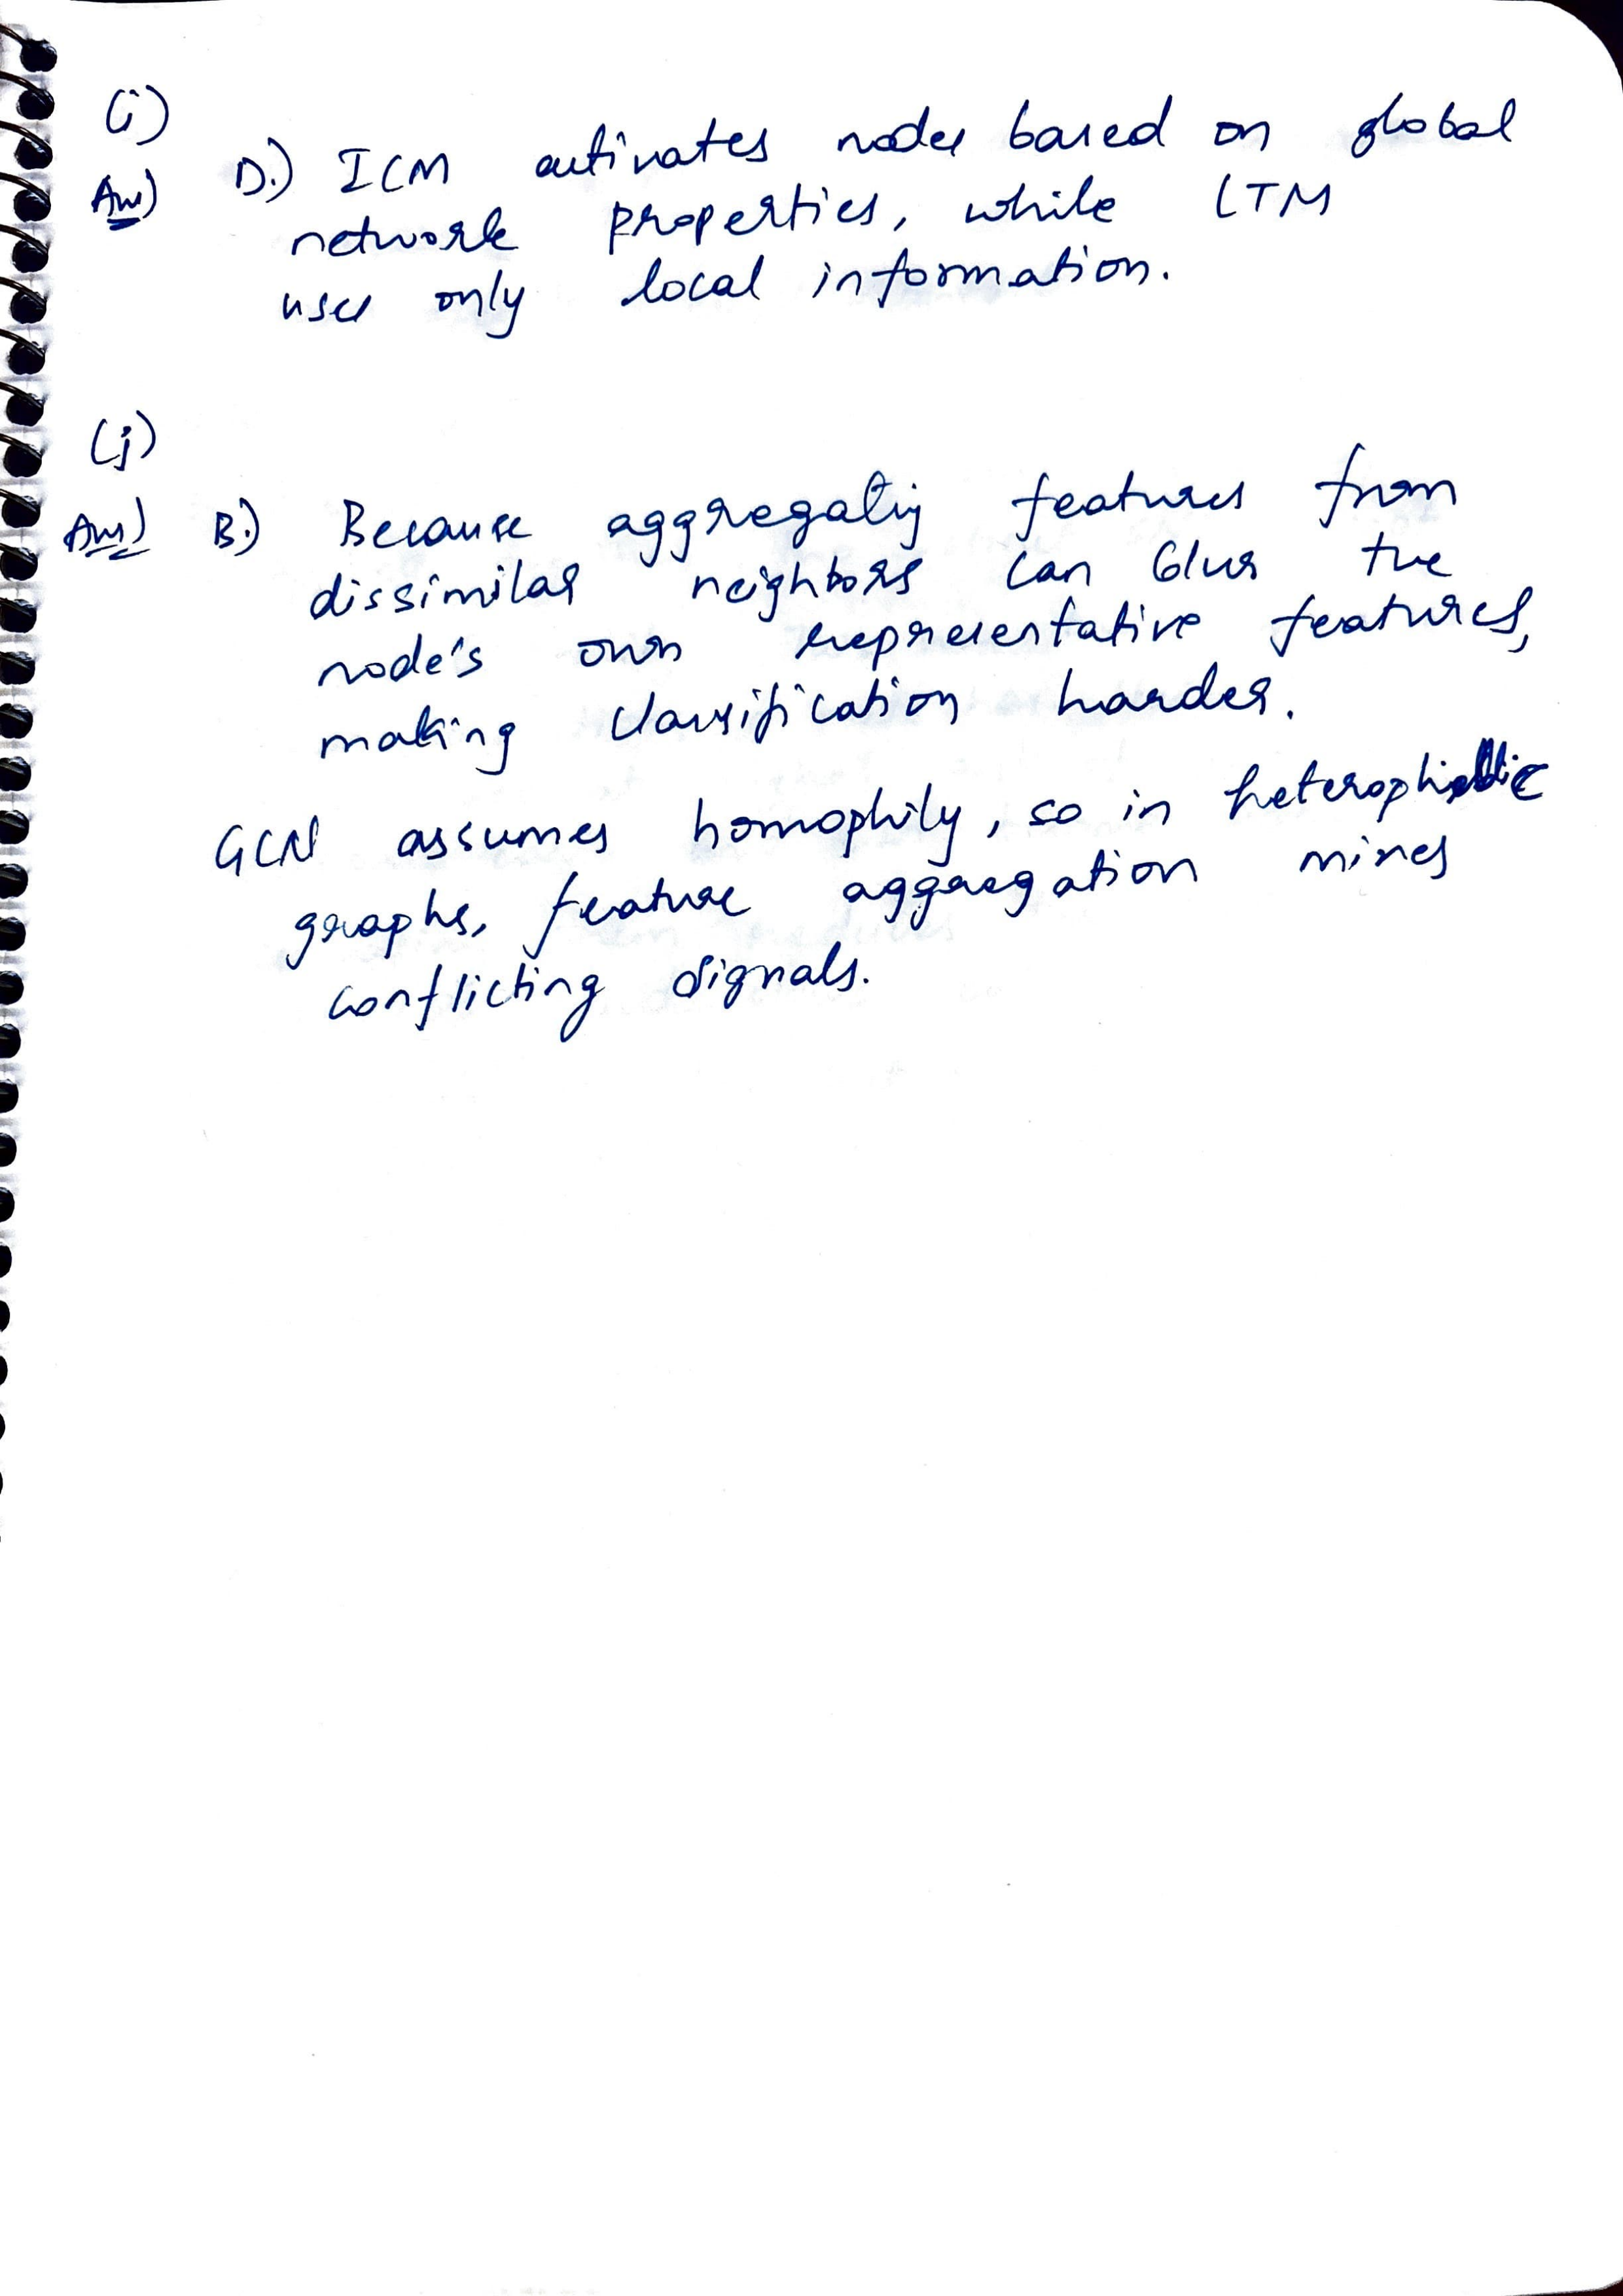 (i)
Ans) D.) ICM activates nodes based on global
network properties, while LTM
uses only local information.
(j)
Ans) B.) Because aggregating features from
dissimilar neighbors can blur the
node's own representative features,
making classification harder.
GCN assumes homophily, so in heterophilic
graphs, feature aggregation mixes
conflicting signals.